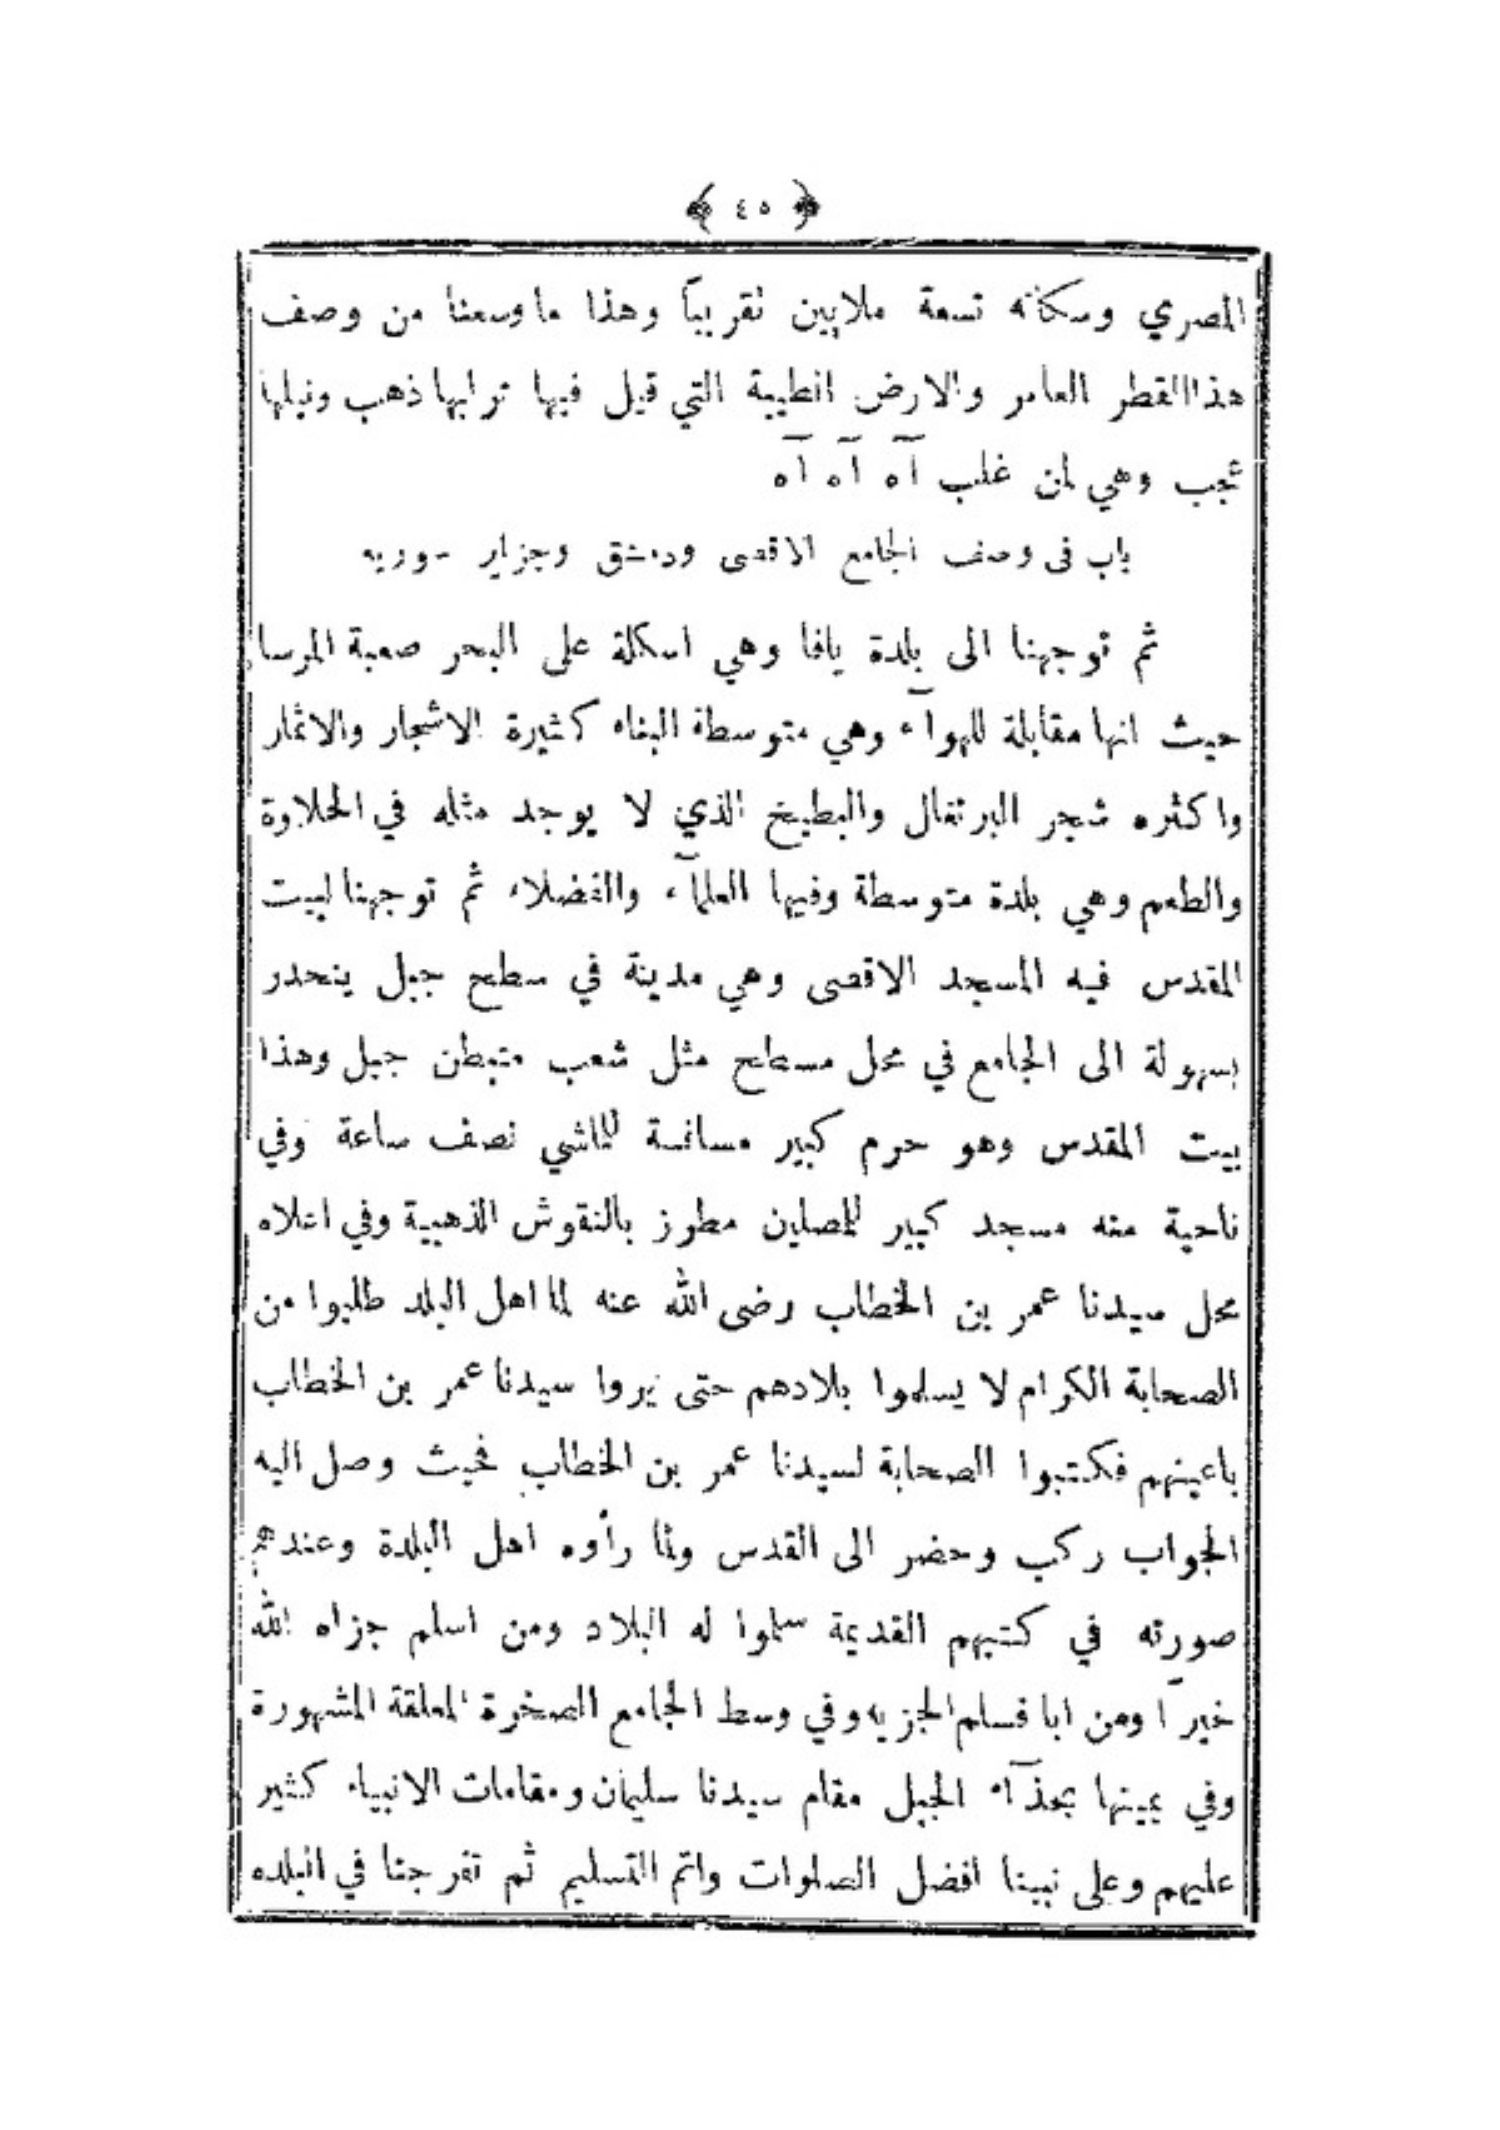 ﴿ ٤٥ ﴾
المصري وسكانه تسعة ملايين تقريباً وهذا ما وسعنا من وصف
هذا القطر العامر والارض الطيبة التي قيل فيها ترابها ذهب ونيلها
عجب وهي لمن غلب آه آه آه
باب في وصف الجامع الاقصى ودمشق وجزاير سوريه
ثم توجهنا الى بلدة يافا وهي اسكلة على البحر صعبة المرسا
حيث انها مقابلة للهوآء وهي متوسطة البناء كثيرة الاشجار والاثمار
واكثره شجر البرتقال والبطيخ الذي لا يوجد مثله في الحلاوة
والطعم وهي بلدة متوسطة وفيها العلمآء والفضلاء ثم توجهنا لبيت
المقدس فيه المسجد الاقصى وهي مدينة في سطح جبل ينحدر
بسهولة الى الجامع في محل مسطح مثل شعب متبطن جبل وهذا
بيت المقدس وهو حرم كبير مسافة للماشي نصف ساعة وفي
ناحية منه مسجد كبير للمصلين مطرز بالنقوش الذهبية وفي اعلاه
محل سيدنا عمر بن الخطاب رضى الله عنه لما اهل البلد طلبوا من
الصحابة الكرام لا يسلموا بلادهم حتى يروا سيدنا عمر بن الخطاب
باعينهم فكتبوا الصحابة لسيدنا عمر بن الخطاب فحيث وصل اليه
الجواب ركب وحضر الى القدس ولما رأوه اهل البلدة وعندهم
صورته في كتبهم القديمة سلموا له البلاد ومن اسلم جزاه الله
خيرًا ومن ابا فسلم الجزيه وفي وسط الجامع الصخرة المعلقة المشهورة
وفي يمينها بحذآء الجبل مقام سيدنا سليمان ومقامات الانبياء كثير
عليهم وعلى نبينا افضل الصلوات واتم التسليم ثم تفرجنا في البلده